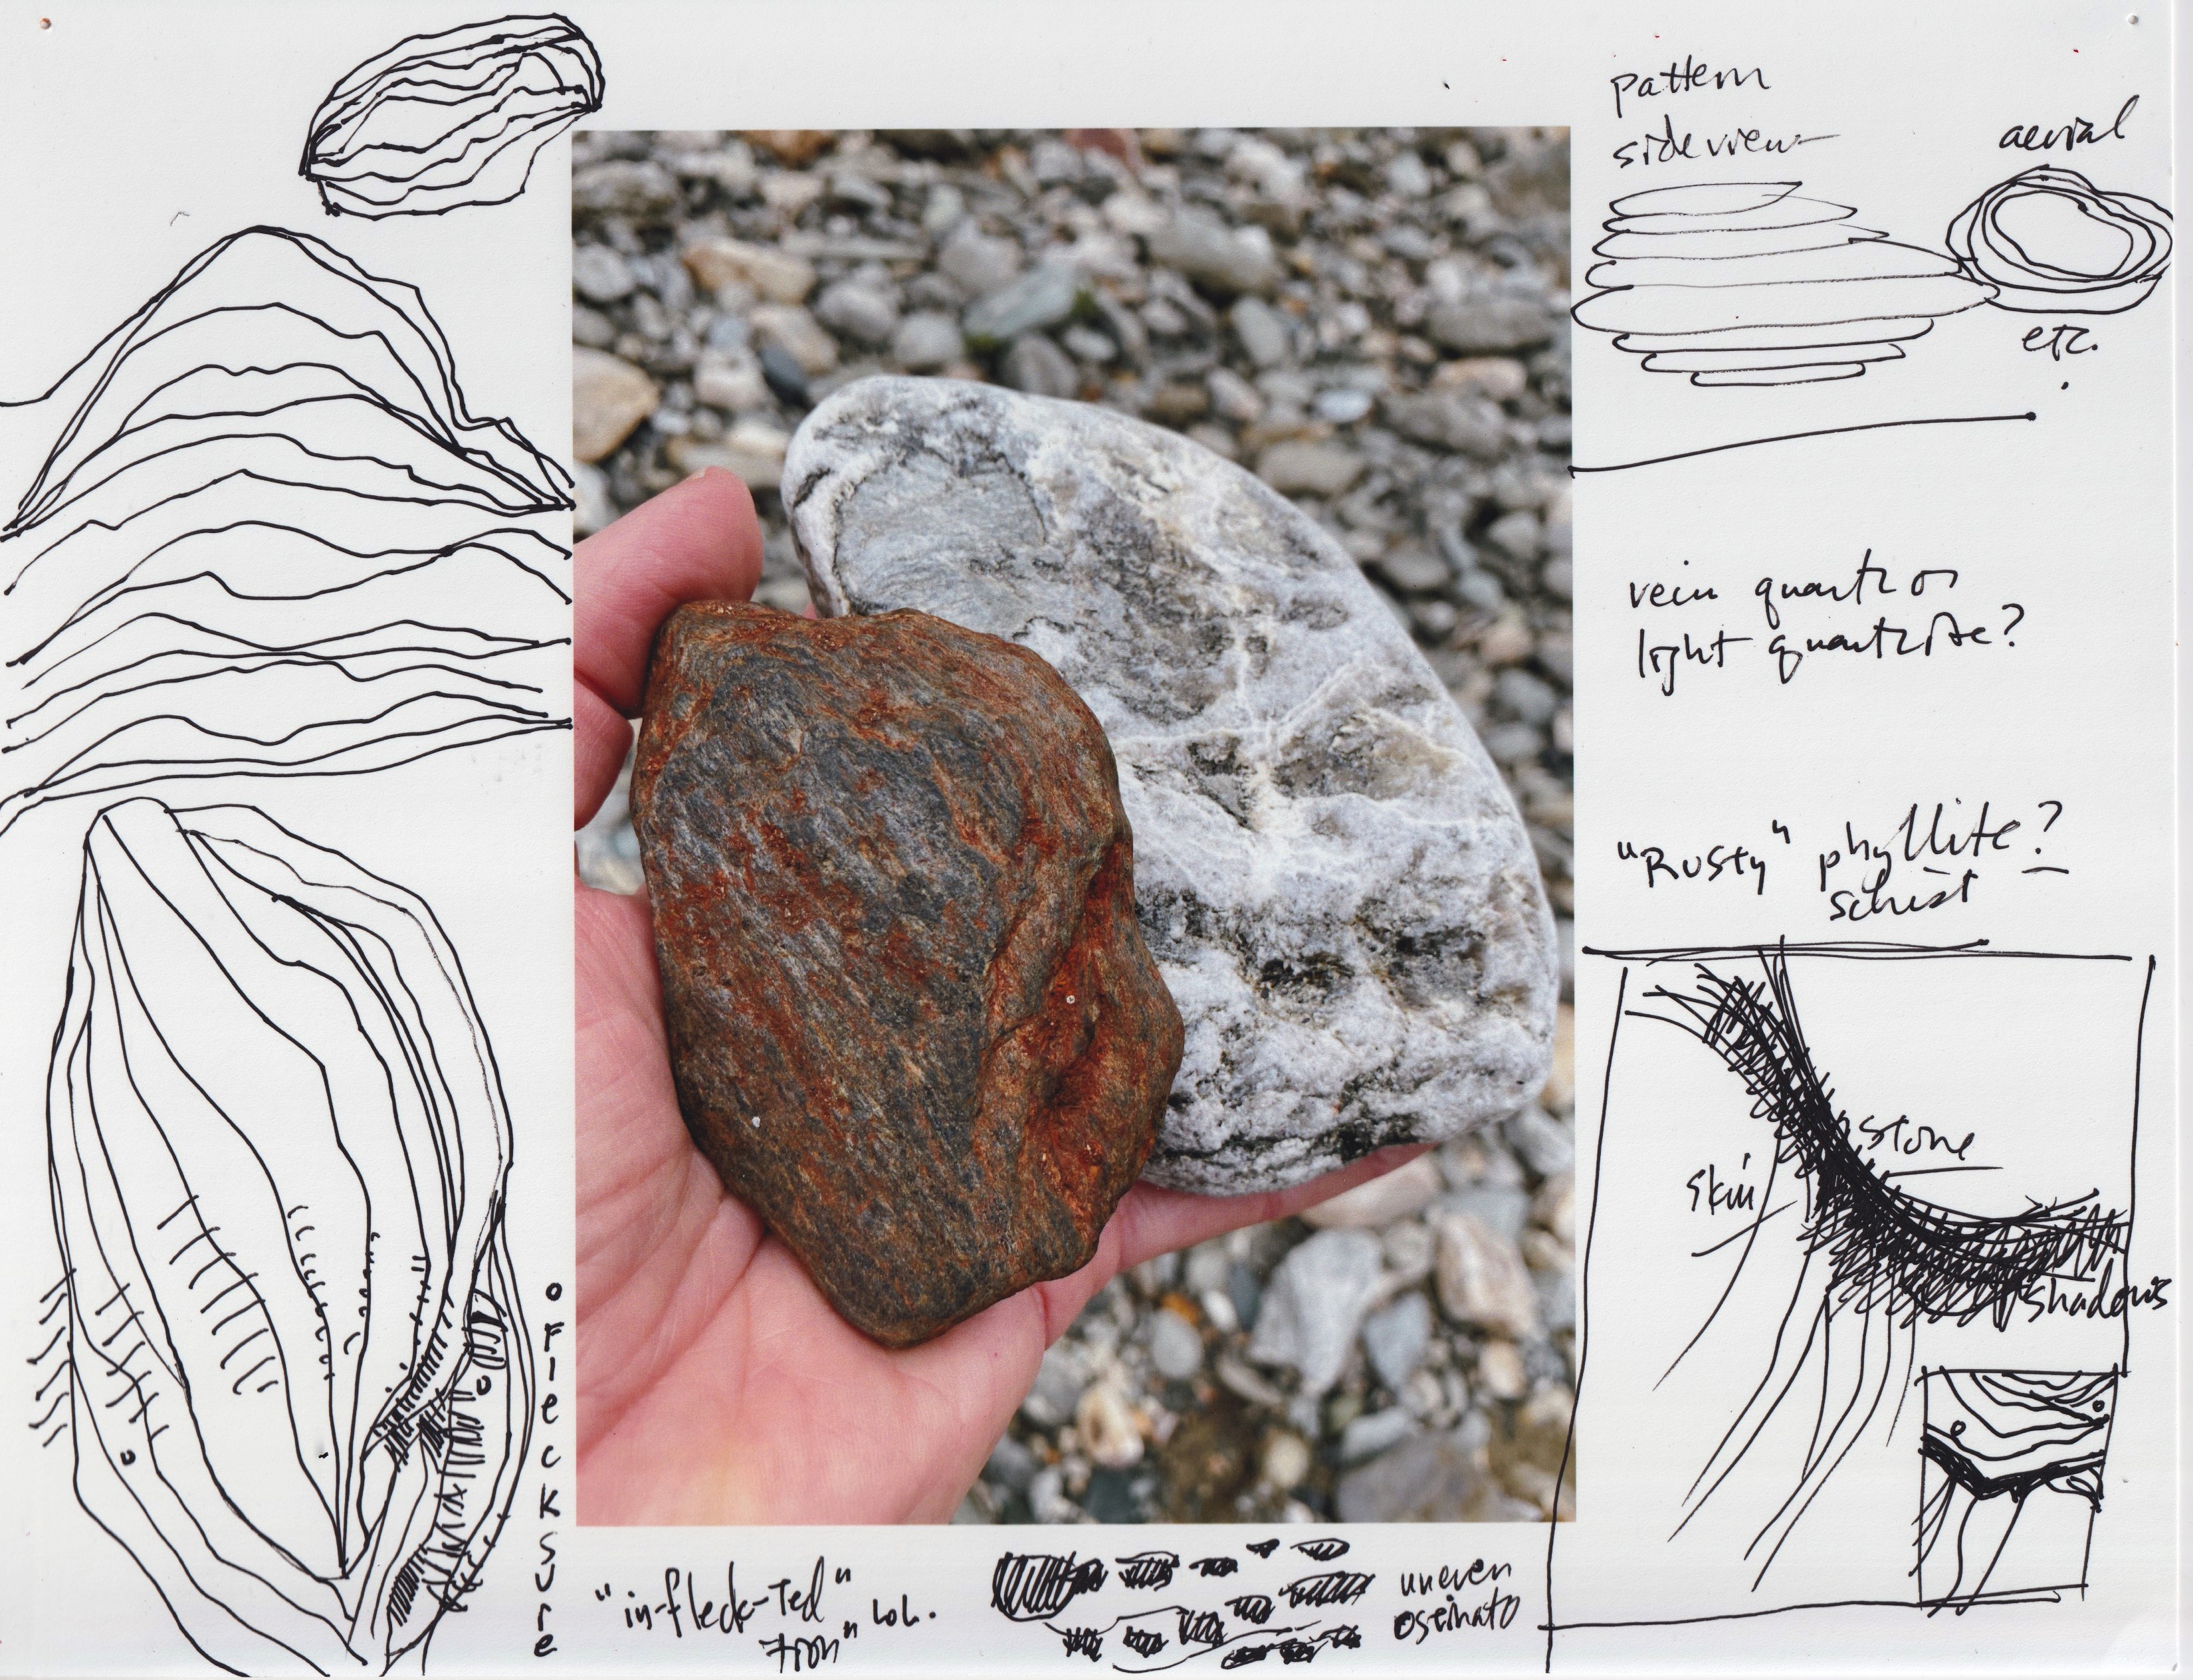 pattern
side view
aerial
etc.
vein quartz or
light quartzite?
"Rusty" phyllite?
schist
stone
skin
shadows
oFlecKSUre
"in-fleck-Ted"
Iron" LOL.
uneven
ostinato